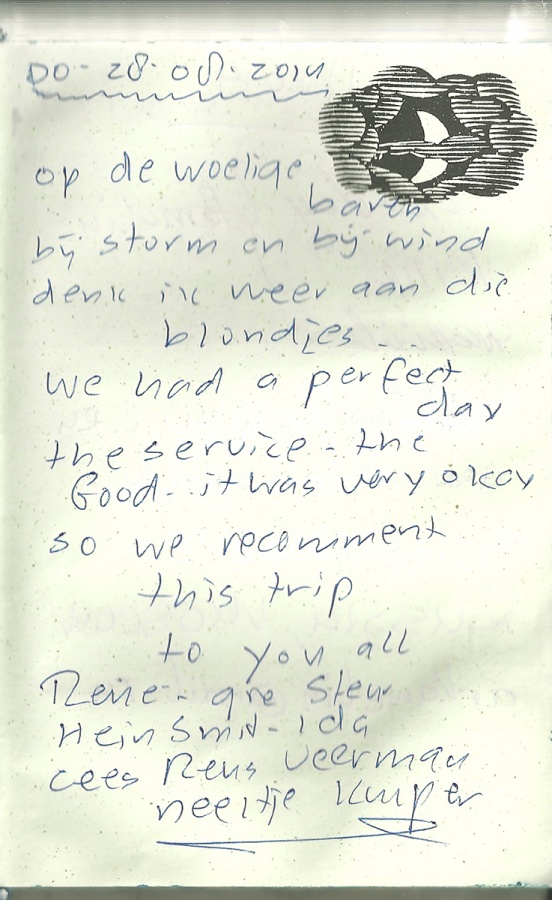 DO - 28 - 08 - 2014
op de woelige
baren
bij storm en bij wind
denk ik weer aan die
blondjes...
we had a perfect
day
the service - the
Good - it was very okey
so we recomment
this trip
to you all
Steur
Hein Smit - Ida
Cees Rens Veerman
neeltje Kuyper